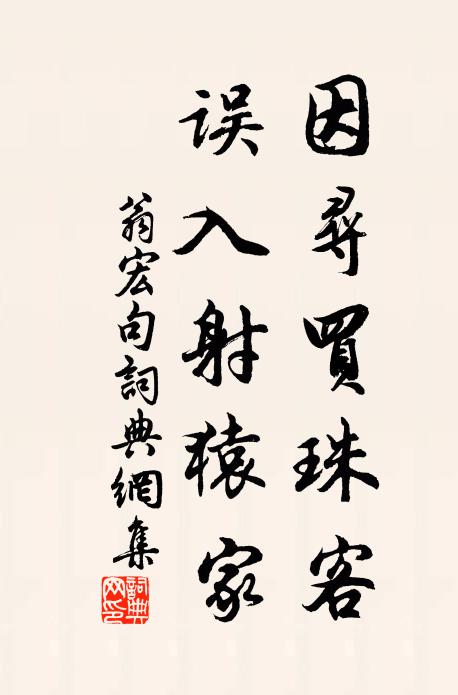 因尋買珠客
误入射猿家
翁宏句詞典網集
詞典网印